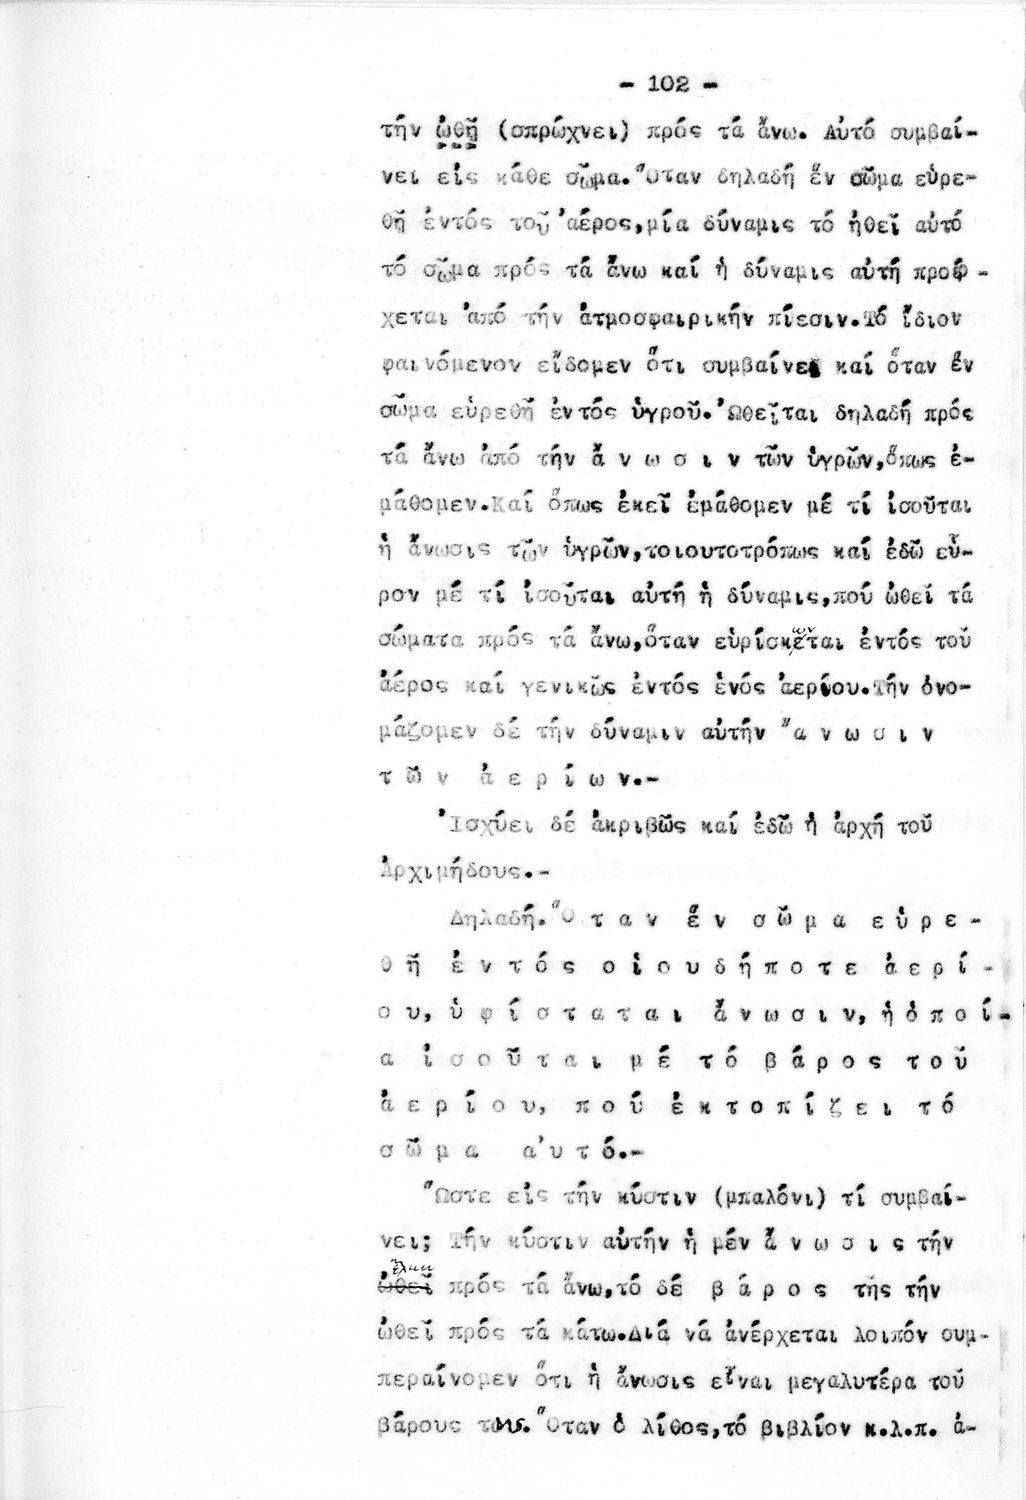 - 102 -
τήν ὠθῇ (σπρώχνει) πρός τά ἄνω. Αὐτό συμβαί-
νει εἰς κάθε σῶμα. Ὅταν δηλαδή ἕν σῶμα εὑρε-
θῇ ἐντός τοῦ ἀέρος, μία δύναμις τό ἠθεῖ αὐτό
τό σῶμα πρός τά ἄνω καί ἡ δύναμις αὐτή προέρ-
χεται ἀπό τήν ἀτμοσφαιρικήν πίεσιν. Τό ἴδιον
φαινόμενον εἴδομεν ὅτι συμβαίνει καί ὅταν ἕν
σῶμα εὑρεθῇ ἐντός ὑγροῦ. Ὠθεῖται δηλαδή πρός
τά ἄνω ἀπό τήν ἄ ν ω σ ι ν τῶν ὑγρῶν, ὅπως ἐ-
μάθομεν. Καί ὅπως ἐκεῖ ἐμάθομεν μέ τί ἰσοῦται
ἡ ἄνωσις τῶν ὑγρῶν, τοιουτοτρόπως καί ἐδῶ εὗ-
ρον μέ τί ἰσοῦται αὐτή ἡ δύναμις, πού ὠθεῖ τά
σώματα πρός τά ἄνω, ὅταν εὑρίσκωνται ἐντός τοῦ
ἀέρος καί γενικῶς ἐντός ἑνός ἀερίου. Τήν ὀνο-
μάζομεν δέ τήν δύναμιν αὐτήν ἄ ν ω σ ι ν
τ ῶ ν ἀ ε ρ ί ω ν.-
Ἰσχύει δέ ἀκριβῶς καί ἐδῶ ἡ ἀρχή τοῦ
Ἀρχιμήδους.-
Δηλαδή. Ὅ τ α ν ἕ ν σ ῶ μ α ε ὑ ρ ε -
θ ῇ ἐ ν τ ό ς ο ἱ ο υ δ ή π ο τ ε ἀ ε ρ ί -
ο υ, ὑ φ ί σ τ α τ α ι ἄ ν ω σ ι ν, ἡ ὁ π ο ί -
α ἰ σ ο ῦ τ α ι μ έ τ ό β ά ρ ο ς τ ο ῦ
ἀ ε ρ ί ο υ, π ο ύ ἐ κ τ ο π ί ζ ε ι τ ό
σ ῶ μ α α ὐ τ ό.-
Ὥστε εἰς τήν κύστιν (μπαλόνι) τί συμβαί-
νει; Τήν κύστιν αὐτήν ἡ μέν ἄ ν ω σ ι ς τήν
ἕλκει πρός τά ἄνω, τό δέ β ά ρ ο ς τής τήν
ὠθεῖ πρός τά κάτω. Διά νά ἀνέρχεται λοιπόν συμ-
περαίνομεν ὅτι ἡ ἄνωσις εἶναι μεγαλυτέρα τοῦ
βάρους της. Ὅταν ὁ λίθος, τό βιβλίον κ.λ.π. ἀ-